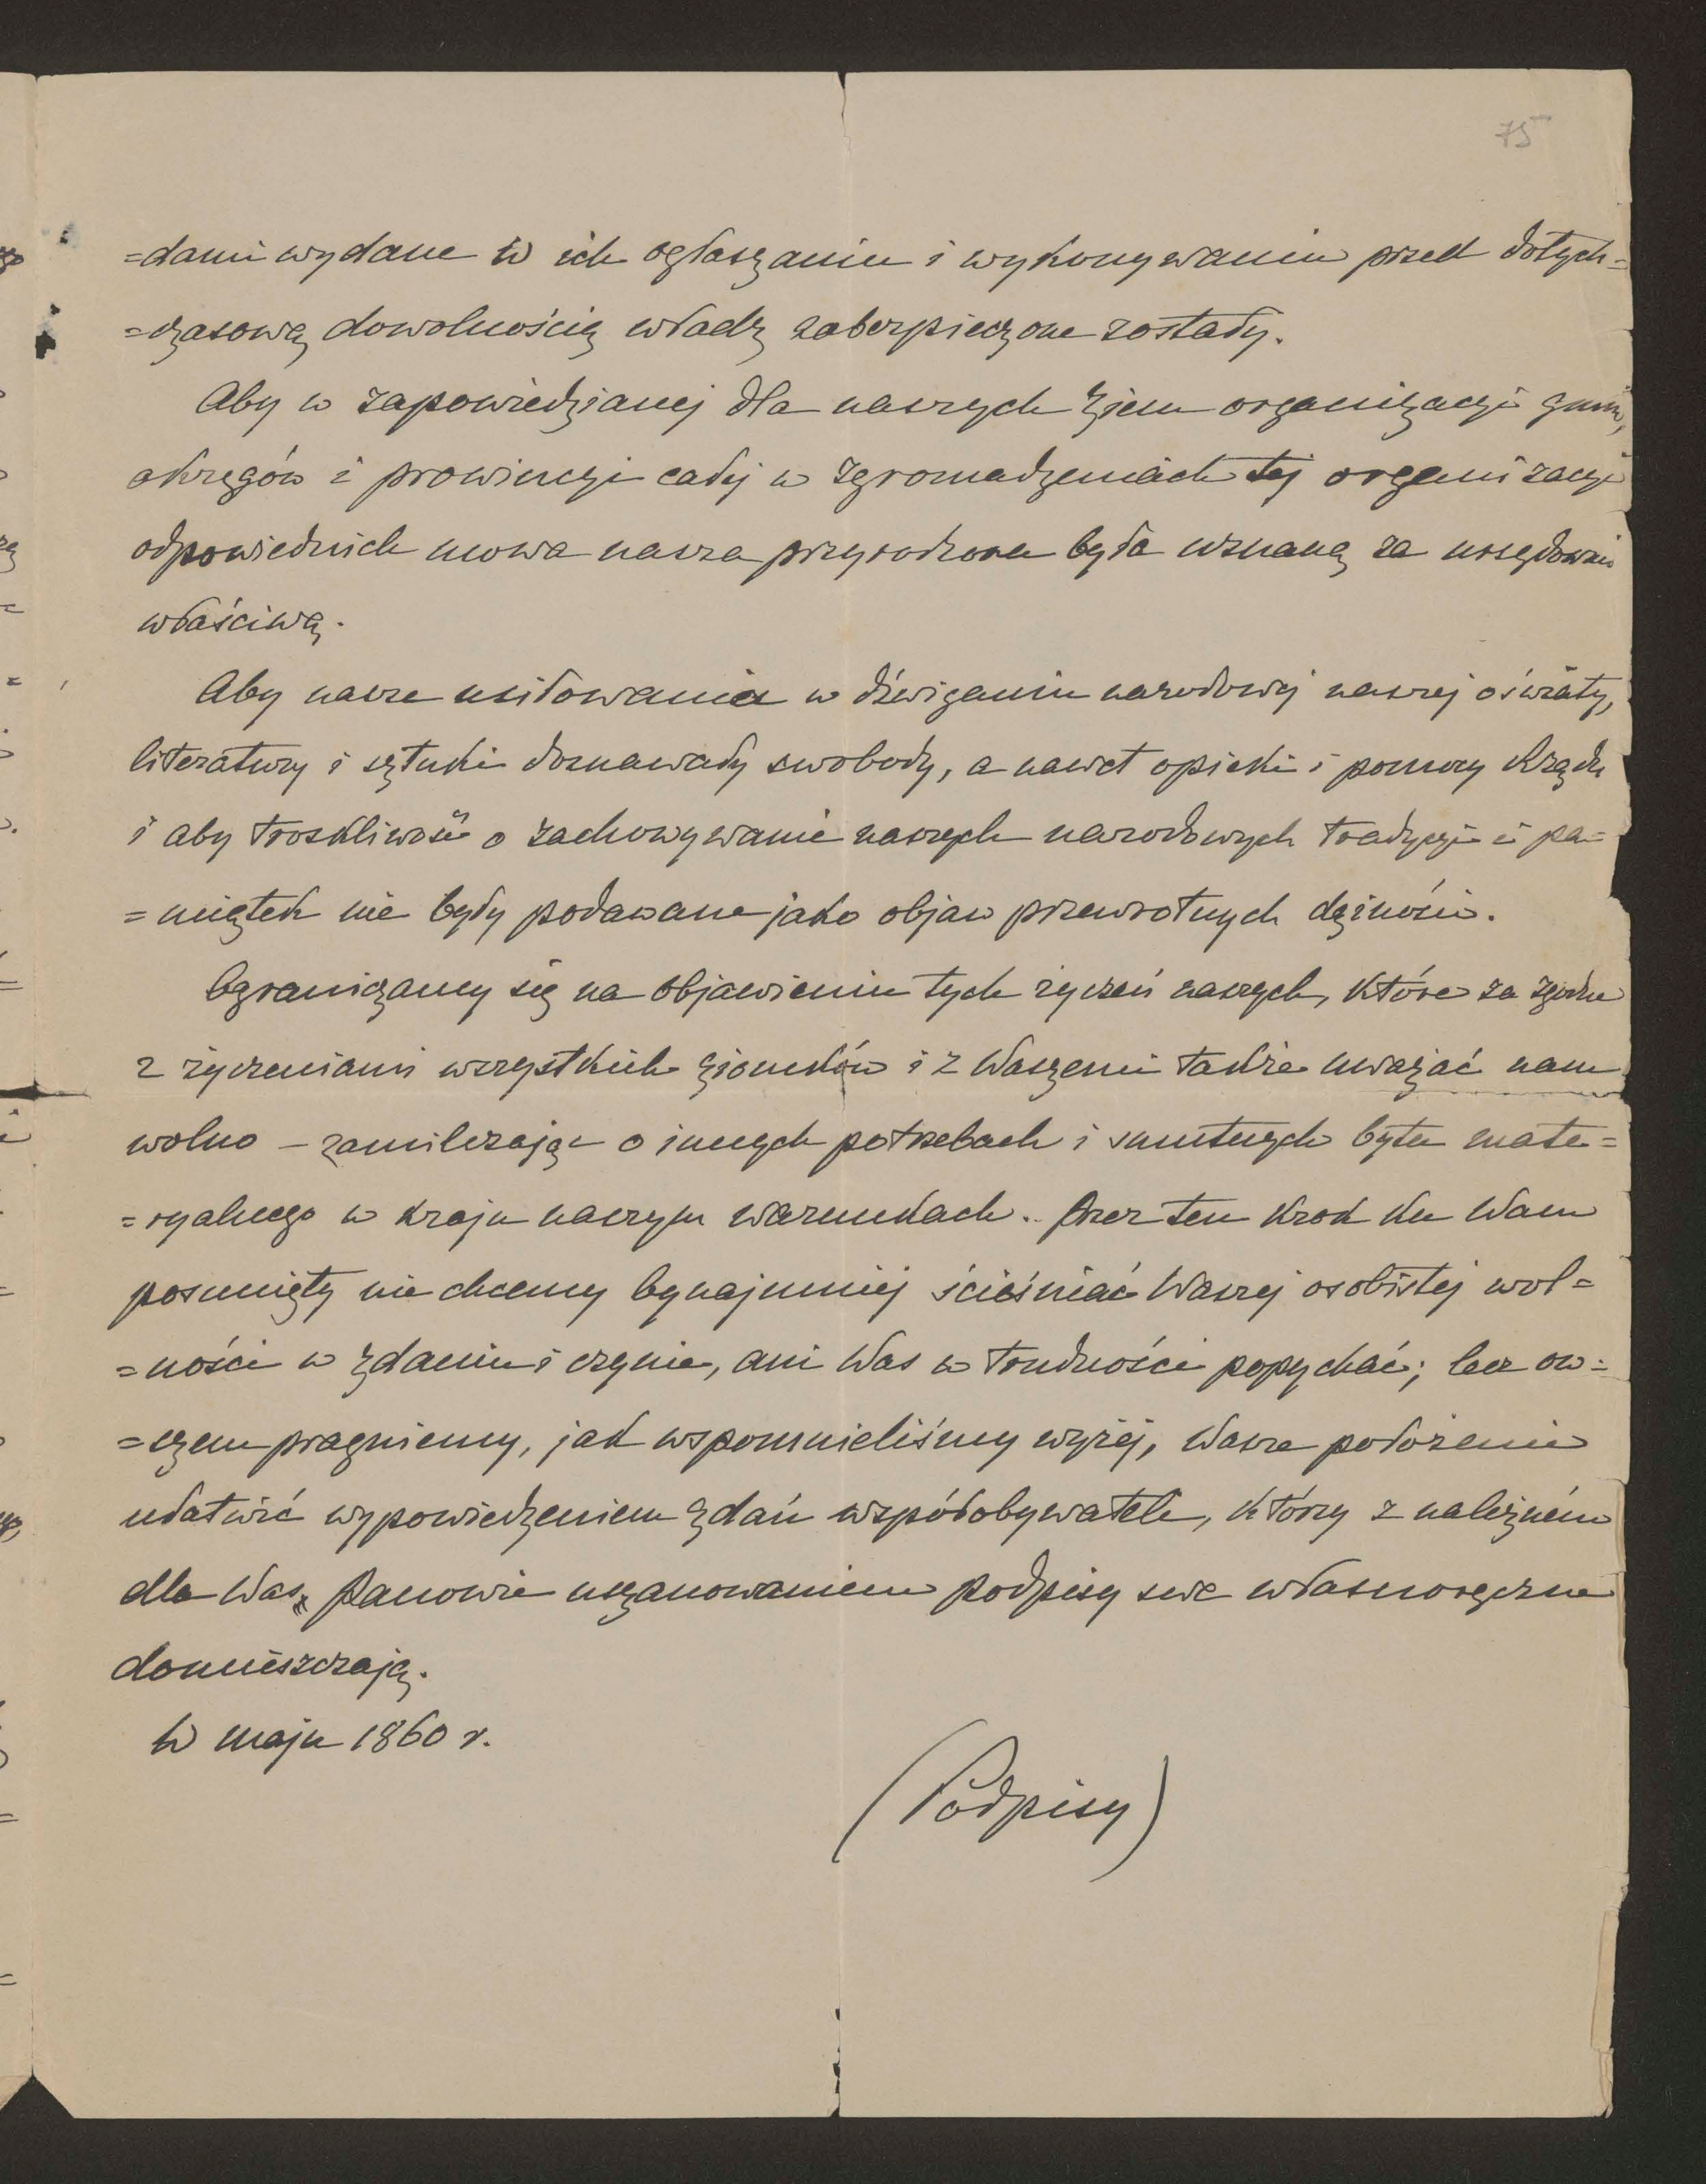 75
=dami wydane w ich ogłaszaniu i wykonywaniu przed dotych=
=czasową dowolnością władz zabezpieczone zostały.
Aby w zapowiedzianej dla naszych ziem organizacyi gmin,
okręgów i prowincyi całej w zgromadzeniach tej organizacyi
odpowiednich mowa nasza przyrodzona była uznaną za urzędownie
właściwą.
Aby nasze usiłowania w dźwiganiu narodowej naszej oświaty,
literatury i sztuki doznawały swobody, a nawet opieki i pomocy Rządu
i aby troskliwość o zachowywanie naszych narodowych tradycyi i pa=
=miątek nie były podawane jako objaw przewrotnych dążności.
Ograniczamy się na objawieniu tych życzeń naszych, które za zgodne
z życzeniami wszystkich ziomków i z Waszemi także uważać nam
wolno – zamilczając o innych potrzebach i smutnych bytu mate=
=ryalnego w kraju naszym warunkach. Przez ten krok ku Wam
posunięty nie chcemy bynajmniej ścieśniać Waszej osobistej wol=
=ności w zdaniu i czynie, ani Was w trudności popychać; lecz ow=
=szem pragniemy, jak wspomnieliśmy wyżej, Wasze położenie
ułatwić wypowiedzeniem zdań współobywateli, którzy z należném
dla Was, Panowie uszanowaniem podpisy swe własnoręczne
domieszczają.
W maju 1860 r.
(Podpisy)